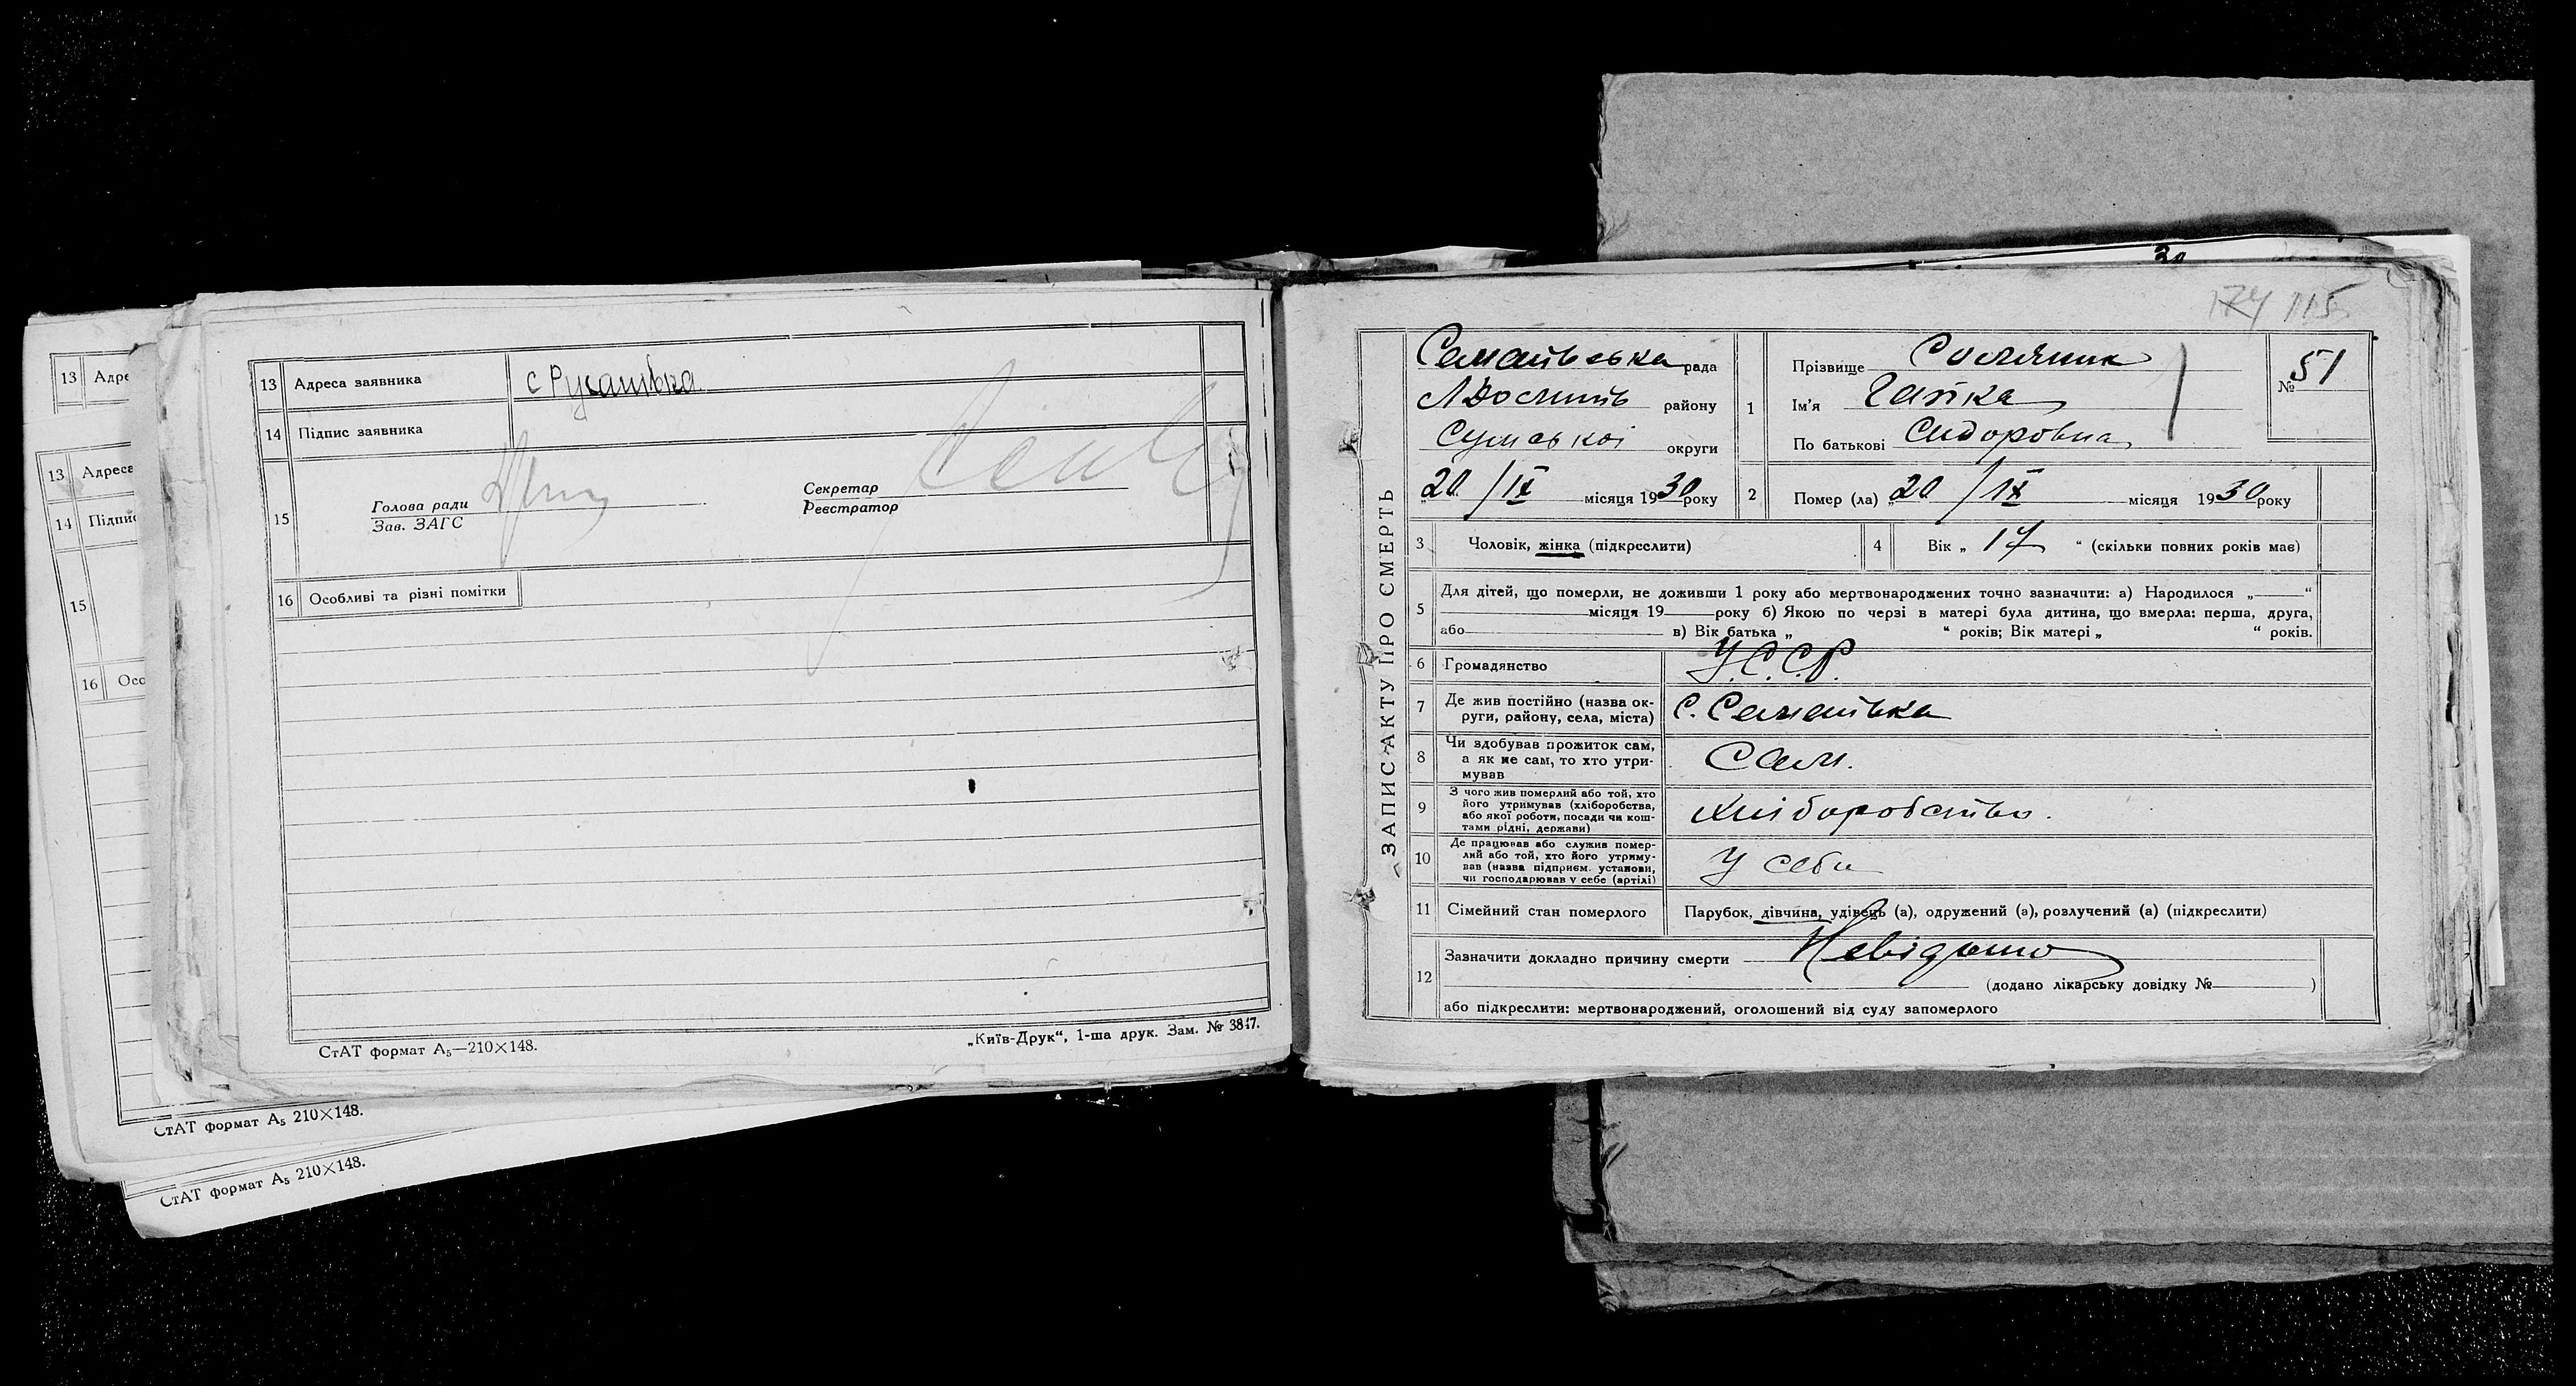 13 Адре
13 Адреса
14 Підпис
15
16 Осо
СтАТ формат А₅ 210×148.
СтАТ формат А₅ 210×148.
13 Адреса заявника
14 Підпис заявника
15 Голова ради
Зав. ЗАГС
Секретар
Реєстратор
16 Особливі та різні помітки
СтАТ формат А₅—210×148.
„Київ-Друк“, 1-ша друк. Зам. № 3847.
174 115
ЗАПИС АКТУ ПРО СМЕРТЬ
рада
району
Сумської округи
„20 / IX місяця 1930 року
1 Прізвище
Ім'я Гапка
По батькові Сидоровна
№ 51
2 Помер (ла) „20 / IX місяця 1930 року
3 Чоловік, жінка (підкреслити)
4 Вік „ 17 “ (скільки повних років має)
5 Для дітей, що померли, не доживши 1 року або мертвонароджених точно зазначити: а) Народилося „ “
місяця 19 року б) Якою по черзі в матері була дитина, що вмерла: перша, друга,
або в) Вік батька „ “ років; Вік матері „ “ років.
6 Громадянство У.С.С.Р.
7 Де жив постійно (назва ок-
руги, району, села, міста)
8 Чи здобував прожиток сам,
а як не сам, то хто утри-
мував
Сам.
9 З чого жив померлий або той, хто
його утримував (хліборобства,
або якої роботи, посади чи кош-
тами рідні, держави)
Хліборобство.
10 Де працював або служив помер-
лий або той, хто його утриму-
вав (назва підприєм. установи,
чи господарював у себе (артілі)
У себе
11 Сімейний стан померлого Парубок, дівчина, удівець (а), одружений (а), розлучений (а) (підкреслити)
12 Зазначити докладно причину смерти Невідомо
(додано лікарську довідку № )
або підкреслити: мертвонароджений, оголошений від суду запомерлого